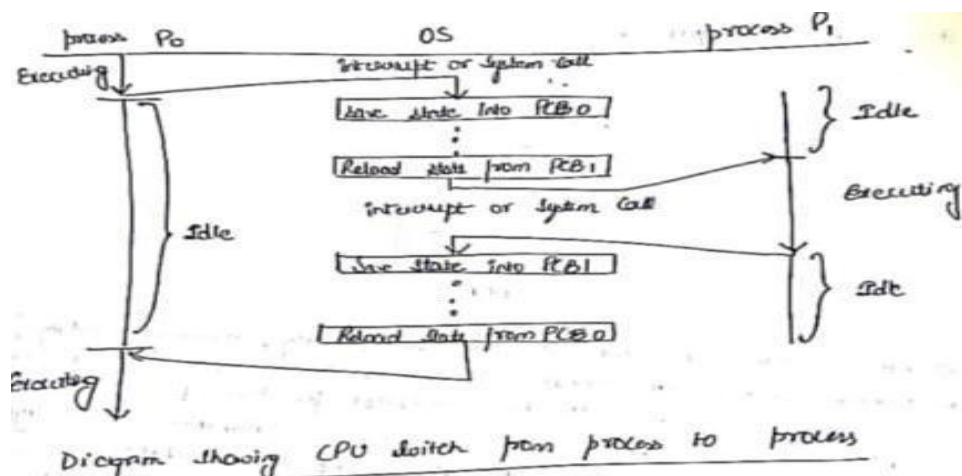 process P0 OS process P1
Executing
interrupt or System Call
Save State into PCB0
Idle
Reload state from PCB1
Executing
interrupt or System Call
Idle
Save State into PCB1
Idle
Reload State from PCB0
Executing
Diagram showing CPU switch from process to process